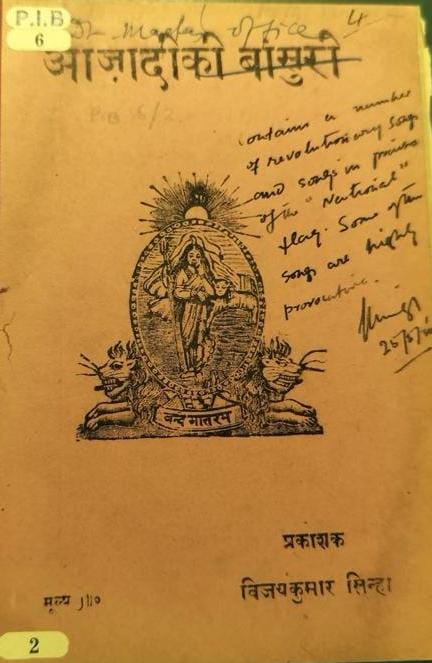 P.I.B
6
office 4
आज़ादी की बांसुरी
P.B 5/2
contains a number
of revolutionary songs
and songs in praise
of the "National"
flag. Some of the
songs are highly
provocative.
25/5/
वन्दे मातरम
प्रकाशक
विजयकुमार सिन्हा
मूल्य
2